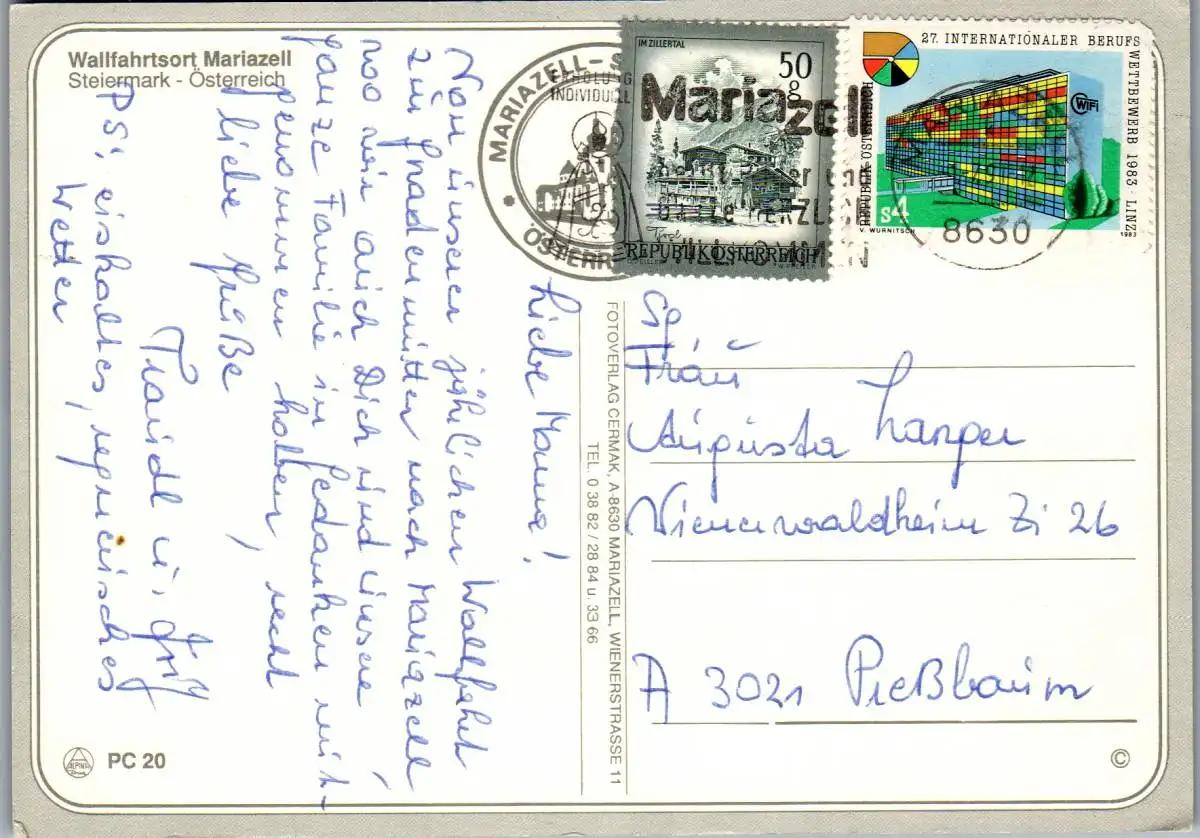 Wallfahrtsort Mariazell
Steiermark - Österreich
MARIAZELL-
ERHOLUNG
INDIVIDUELL
ÖSTERR
Mariazell
8630
IM ZILLERTAL
50
g
Tirol
REPUBLIK ÖSTERREICH
27. INTERNATIONALER BERUFS
WETTBEWERB 1983 · LINZ
REPUBLIK ÖSTERREICH
WIFI
S4
V. WURNITSCH
1983
Liebe Mama!
Von unserer jährlichen Wallfahrt
zur Gnadenmutter nach Mariazell
wo wir auch Dich und unsere
ganze Familie in Gedanken mit-
genommen haben, recht
liebe Grüße
Traudl u.
PS: eiskaltes, regnerisches
Wetter
FOTOVERLAG CERMAK, A-8630 MARIAZELL, WIENERSTRASSE 11
TEL. 0 38 82 / 28 84 u. 33 66
Frau
Augusta Langer
Wienerwaldheim Zi 26
A 3021 Preßbaum
PC 20
©